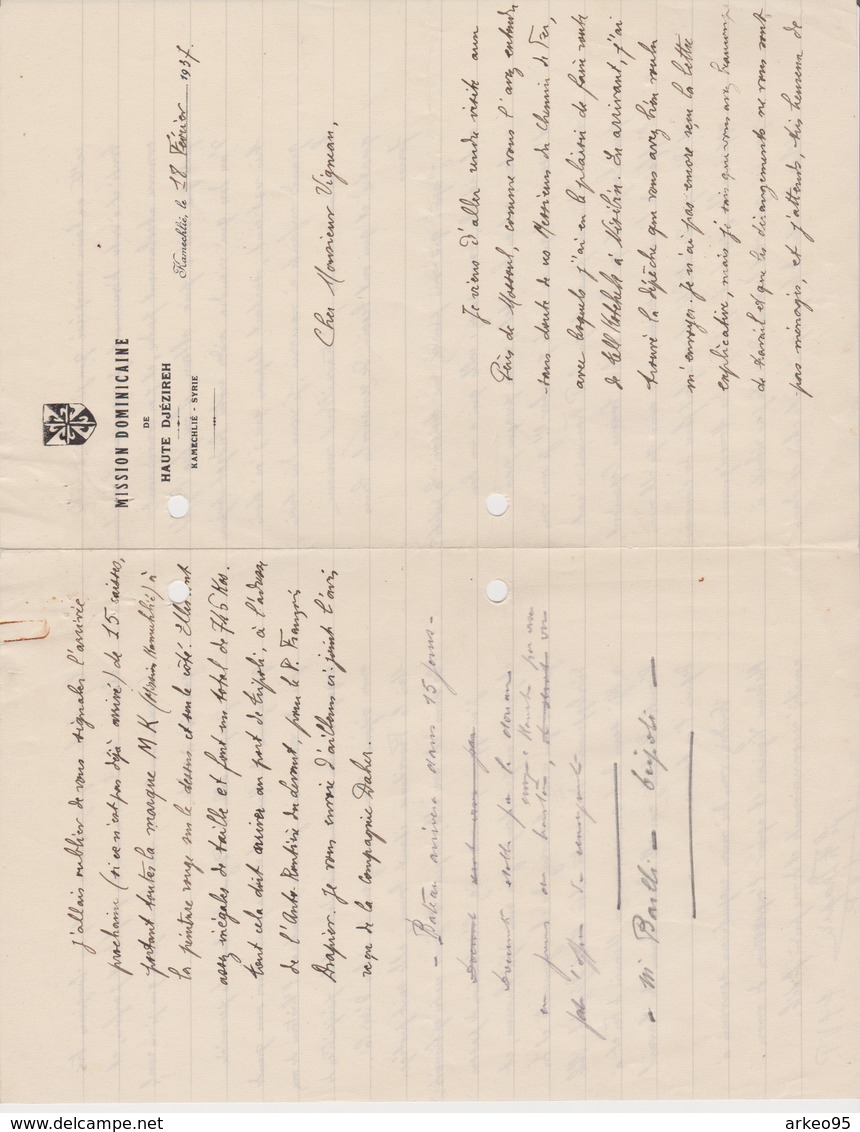 MISSION DOMINICAINE
DE
HAUTE DJÉZIREH
KAMECHLIÉ - SYRIE
Kamechlié, le 18 Février 1937.
Cher Monsieur Vignean,
Je viens d'aller rendre visite aux
Pères de Mossoul, comme vous l'avez entendu
sans doute de nos Messieurs du Chemin de Fer,
avec lesquels j'ai eu le plaisir de faire route
de Tell Kotchek à Nisibin. En arrivant, j'ai
trouvé la dépêche que vous avez bien voulu
m'envoyer. Je n'ai pas encore reçu la lettre
explicative, mais je sais que vous avez beaucoup
de travail et que les dérangements ne vous sont
pas ménagés, et j'attends, très heureux de
J'allais oublier de vous signaler l'arrivée
prochaine (si ce n'est pas déjà arrivé) de 15 caisses,
portant toutes la marque M K (Mission Kamechlié) à
la peinture rouge sur le dessus et sur le côté. Elles sont
assez inégales de taille et font un total de 745 Kos.
tout cela doit arriver au port de Tripoli, à l'adresse
de l'Auto-Routière du Levant, pour le P. François
Drapier. Je vous envoie d'ailleurs ci-joint l'avis
reçu de la Compagnie Daher.
- Bateau arrivera dans 15 jours -
par la douane
- Mr Bailli - Tripoli -
arkeo95